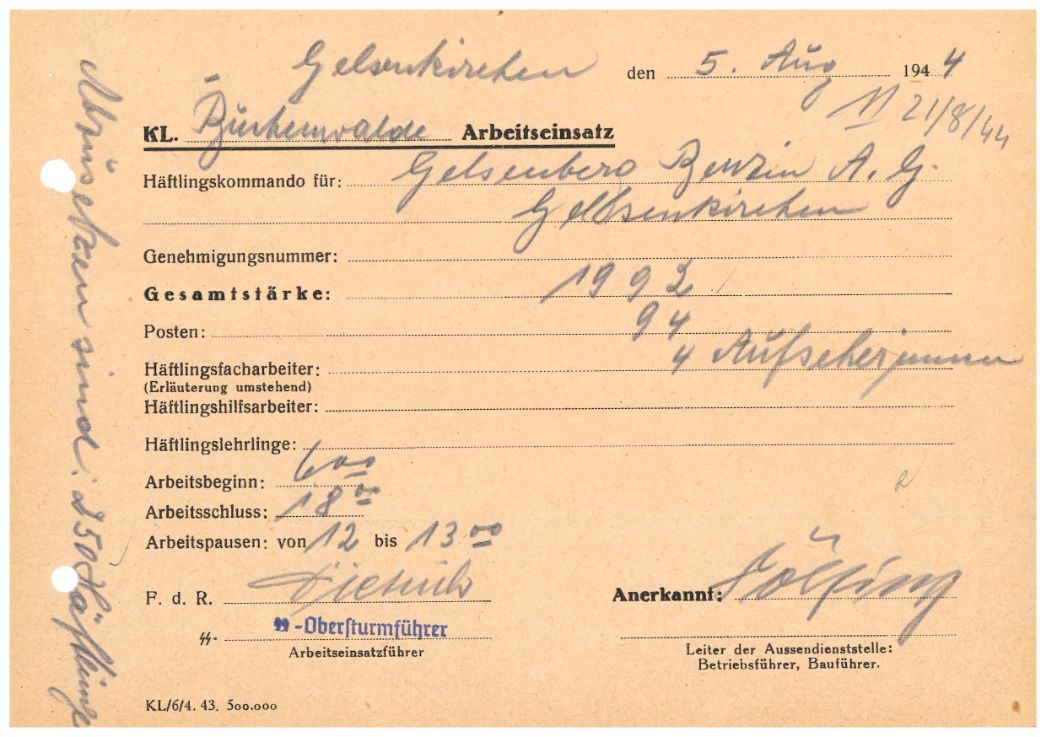 Gelsenkirchen den 5. Aug 1944
21/8/44
KL. Buchenwalde Arbeitseinsatz
Häftlingskommando für: Gelsenberg Benzin A. G.
Gelsenkirchen
Genehmigungsnummer:
Gesamtstärke: 1992
Posten: 94
4 Aufseherinnen
Häftlingsfacharbeiter:
(Erläuterung umstehend)
Häftlingshilfsarbeiter:
Häftlingslehrlinge:
Arbeitsbeginn: 6 00
Arbeitsschluss: 18 00
Arbeitspausen: von 12 bis 13 00
F. d. R. Dietrich
Anerkannt:
ᛋᛋ- ᛋᛋ-Obersturmführer
Arbeitseinsatzführer
Leiter der Aussendienststelle:
Betriebsführer, Bauführer.
KL/6/4. 43. 500.000
Abzusetzen sind: 250 Häftlinge